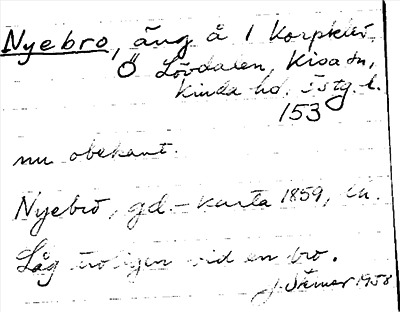 Nyebro, äng å 1 Korpklev
Ö Lövdalen, Kisa sn,
Kinda hd. Östg. l.
153
nu obekant.
Nyebro, gd. - karta 1859,
Låg troligen vid en bro.
J. Stemer 1958